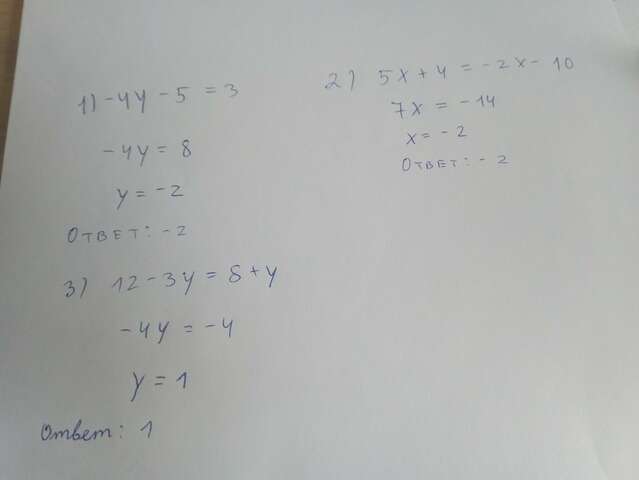 1) -4y - 5 = 3
-4y = 8
y = -2
Ответ: -2
2) 5x + 4 = -2x - 10
7x = -14
x = -2
Ответ: -2
3) 12 - 3y = 8 + y
-4y = -4
y = 1
Ответ: 1